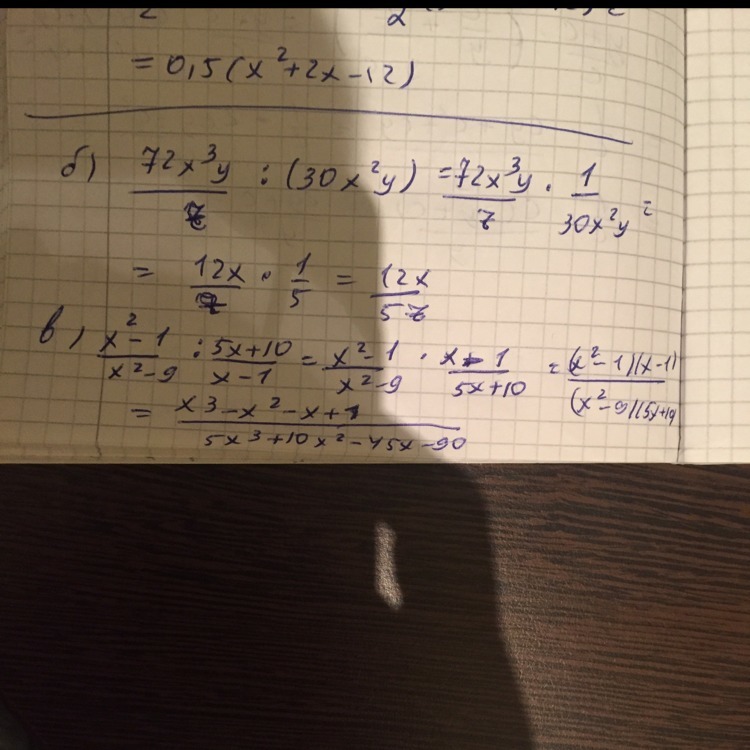 = 0,5(x²+2x-12)
б) 72x³y/z : (30x²y) = 72x³y/z · 1/30x²y =
= 12x/z · 1/5 = 12x/5z
в) x²-1/x²-9 : 5x+10/x-1 = x²-1/x²-9 · x-1/5x+10 = (x²-1)(x-1)/(x²-9)(5x+10
= x3-x²-x+1/5x3+10x²-45x-90